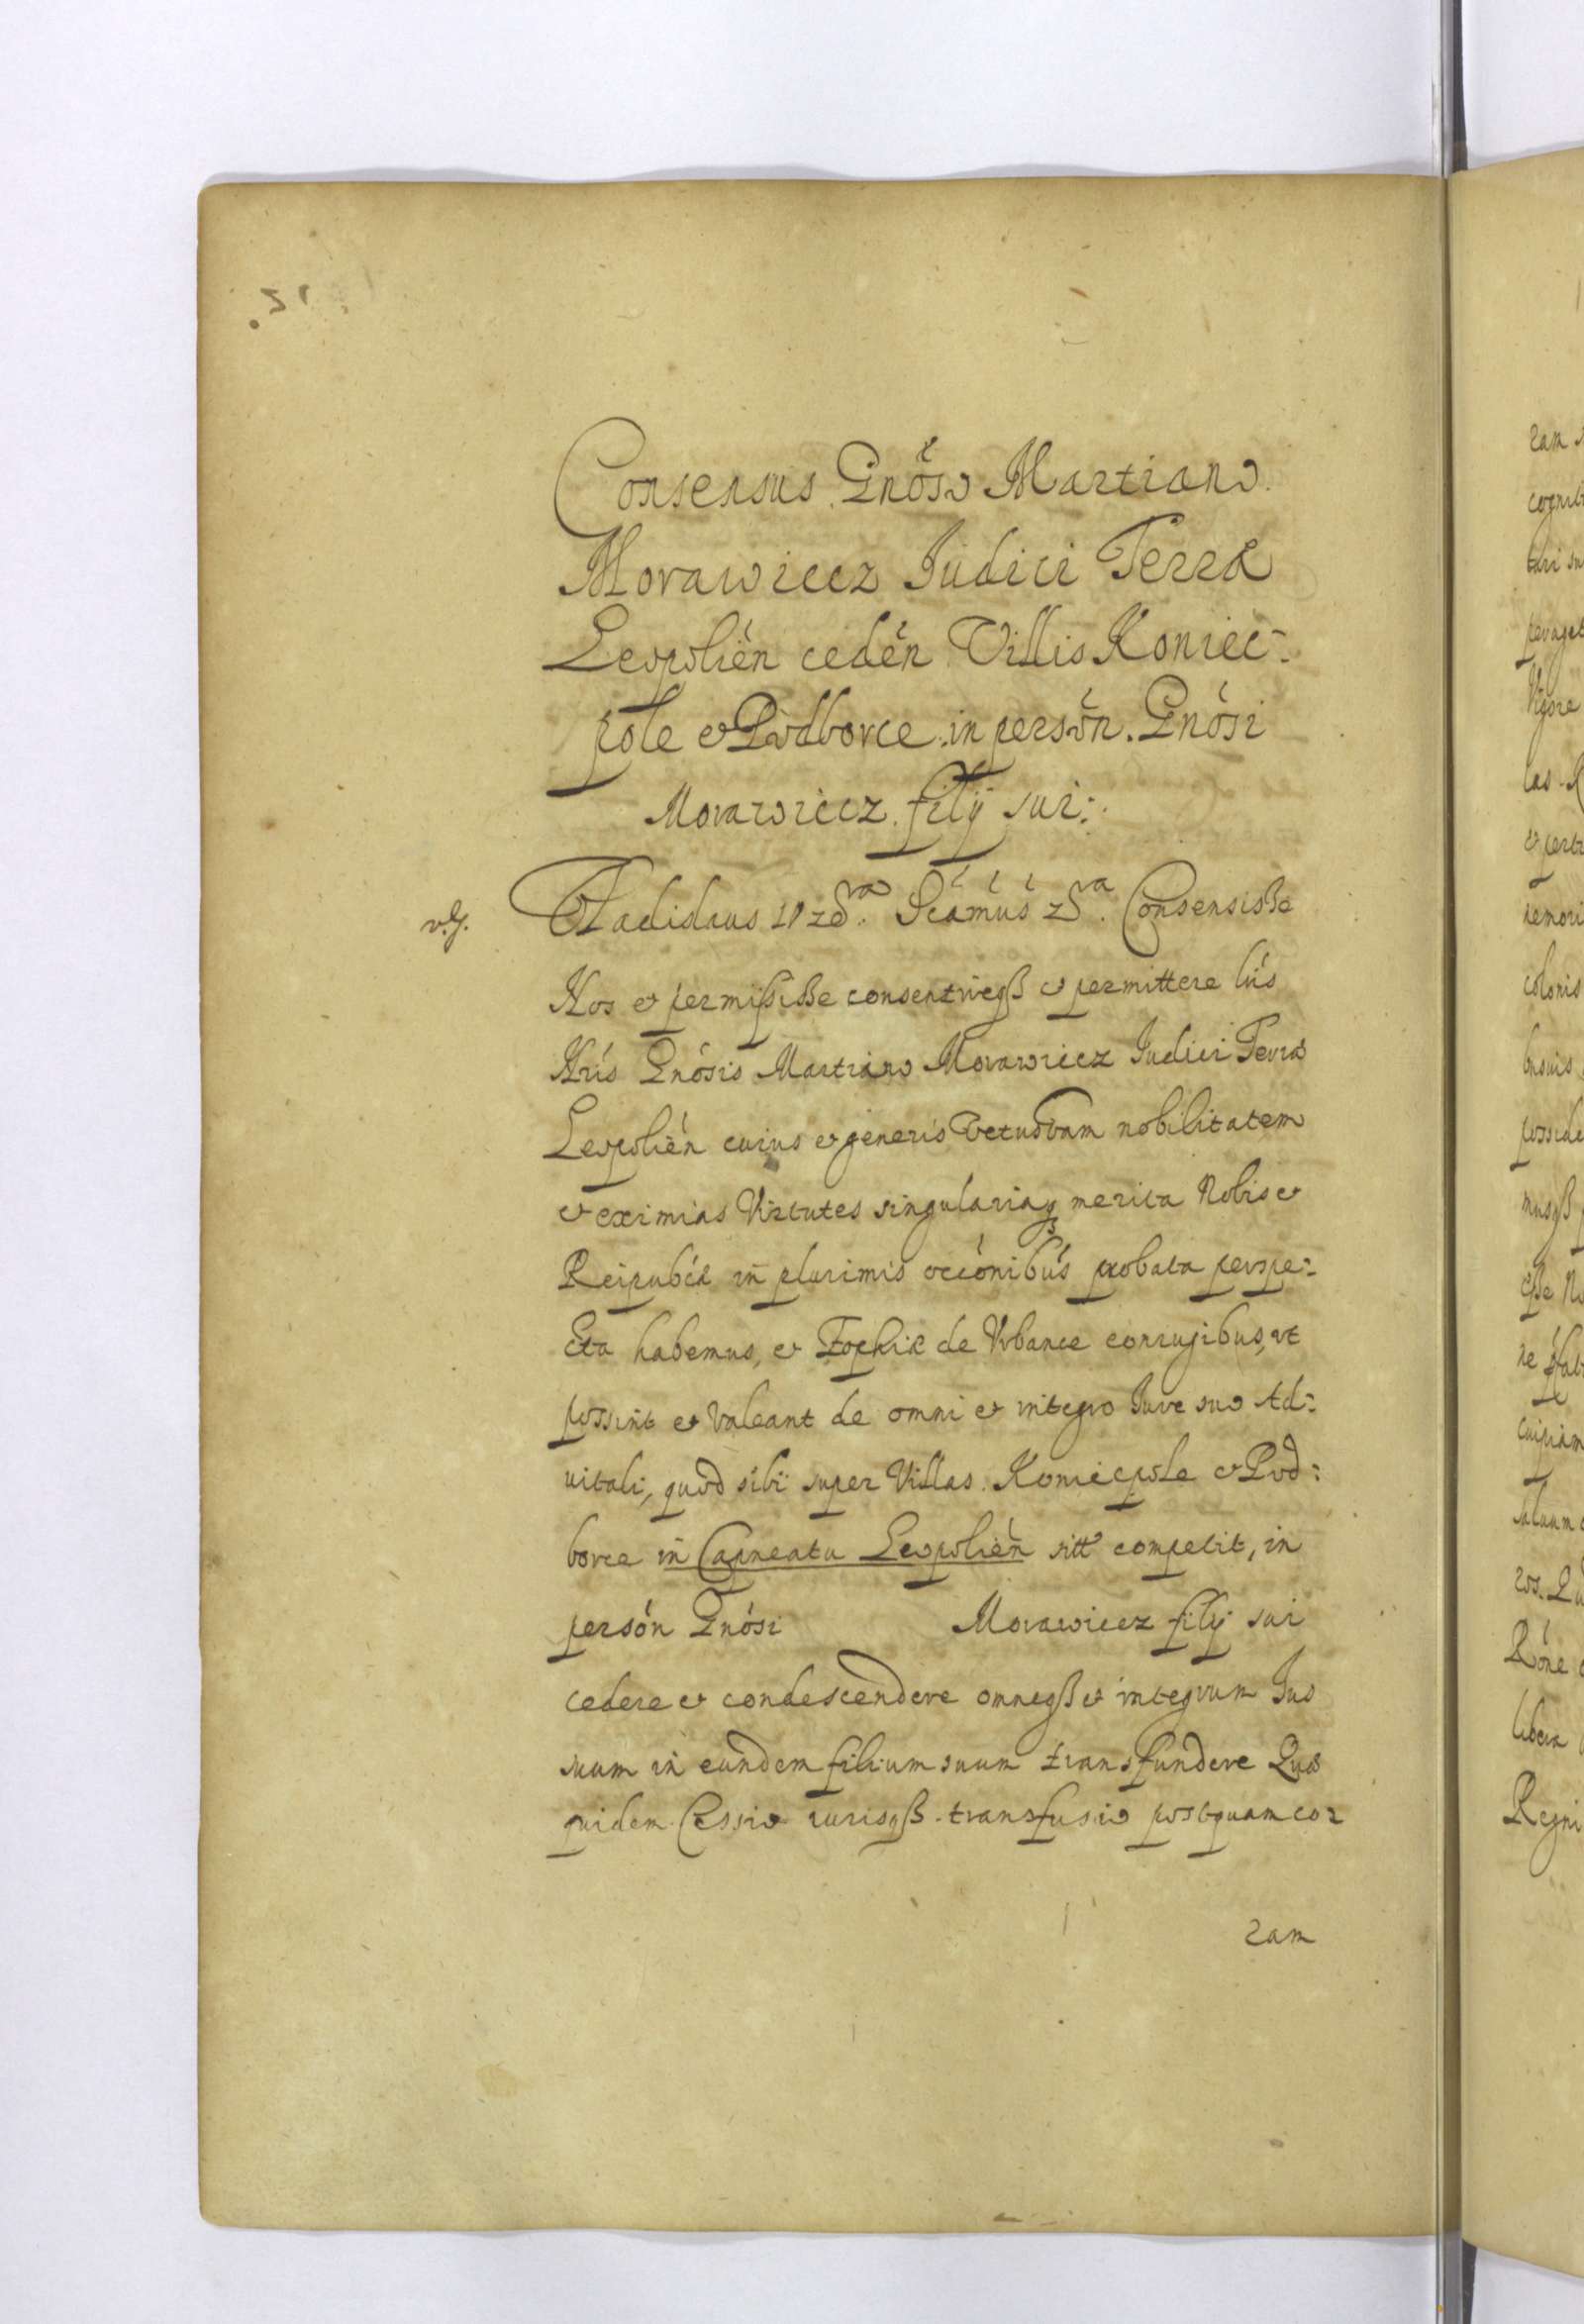 Consensus Gnoso Martiano
Morawiecz Iudici Terræ
Leopolien̄ ceden̄ Villis Koniec-
pole et Podborce in person̄. Gnosi
Morawiecz filij sui:
Vladislaus IV zda. Scamus zda. Consensisse
Nos et permisisse consentireqß et permittere lris
Nris Gnosis Martiano Morawiecz Iudici Terræ
Leopolien̄ cuius et generis vetustam nobilitatem
et eximias Virtutes singulariaq merita Nobis et
Reipubcæ in plurimis occionibus probata perspe:
cta habemus, et Zophiæ de Urbance coniugibus, ut
possint et Valeant de omni et integro Iure suo Ad:
vitali, quod sibi super Villas Koniecpole et Pod:
borce in Capneatu Leopolien̄ sitt competit, in
person̄ Gnosi Morawiecz filij sui
cedere et condescendere omneqß et integrum Ius
suum in eundem filium suum transfundere Quæ
quidem Cessio iurisqß transfusio postquam co2
ram